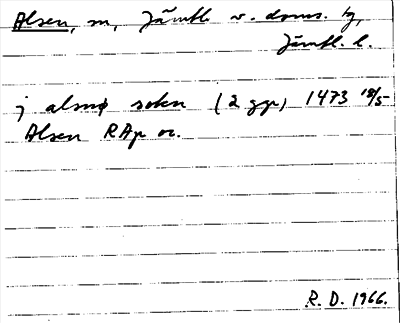 Alsen, sn, Jämtl. v. doms. tg,
Jämtl. l.
j almø sokn (2 ggr) 1473 18/5
Alsen RAp or.
R. D. 1966.